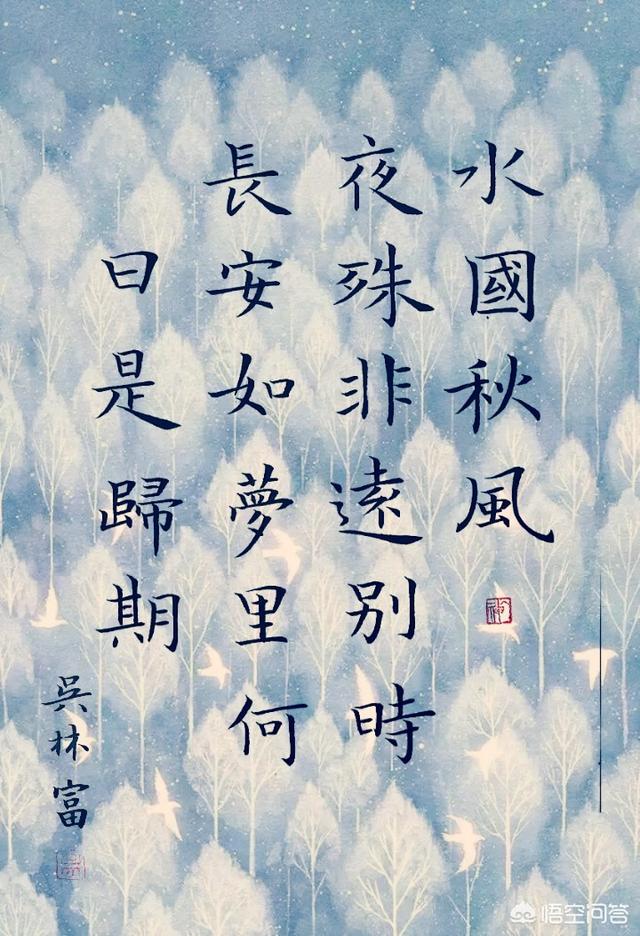 水國秋風
夜殊非遠别時
長安如夢里何
日是歸期
吳林富
悟空问答